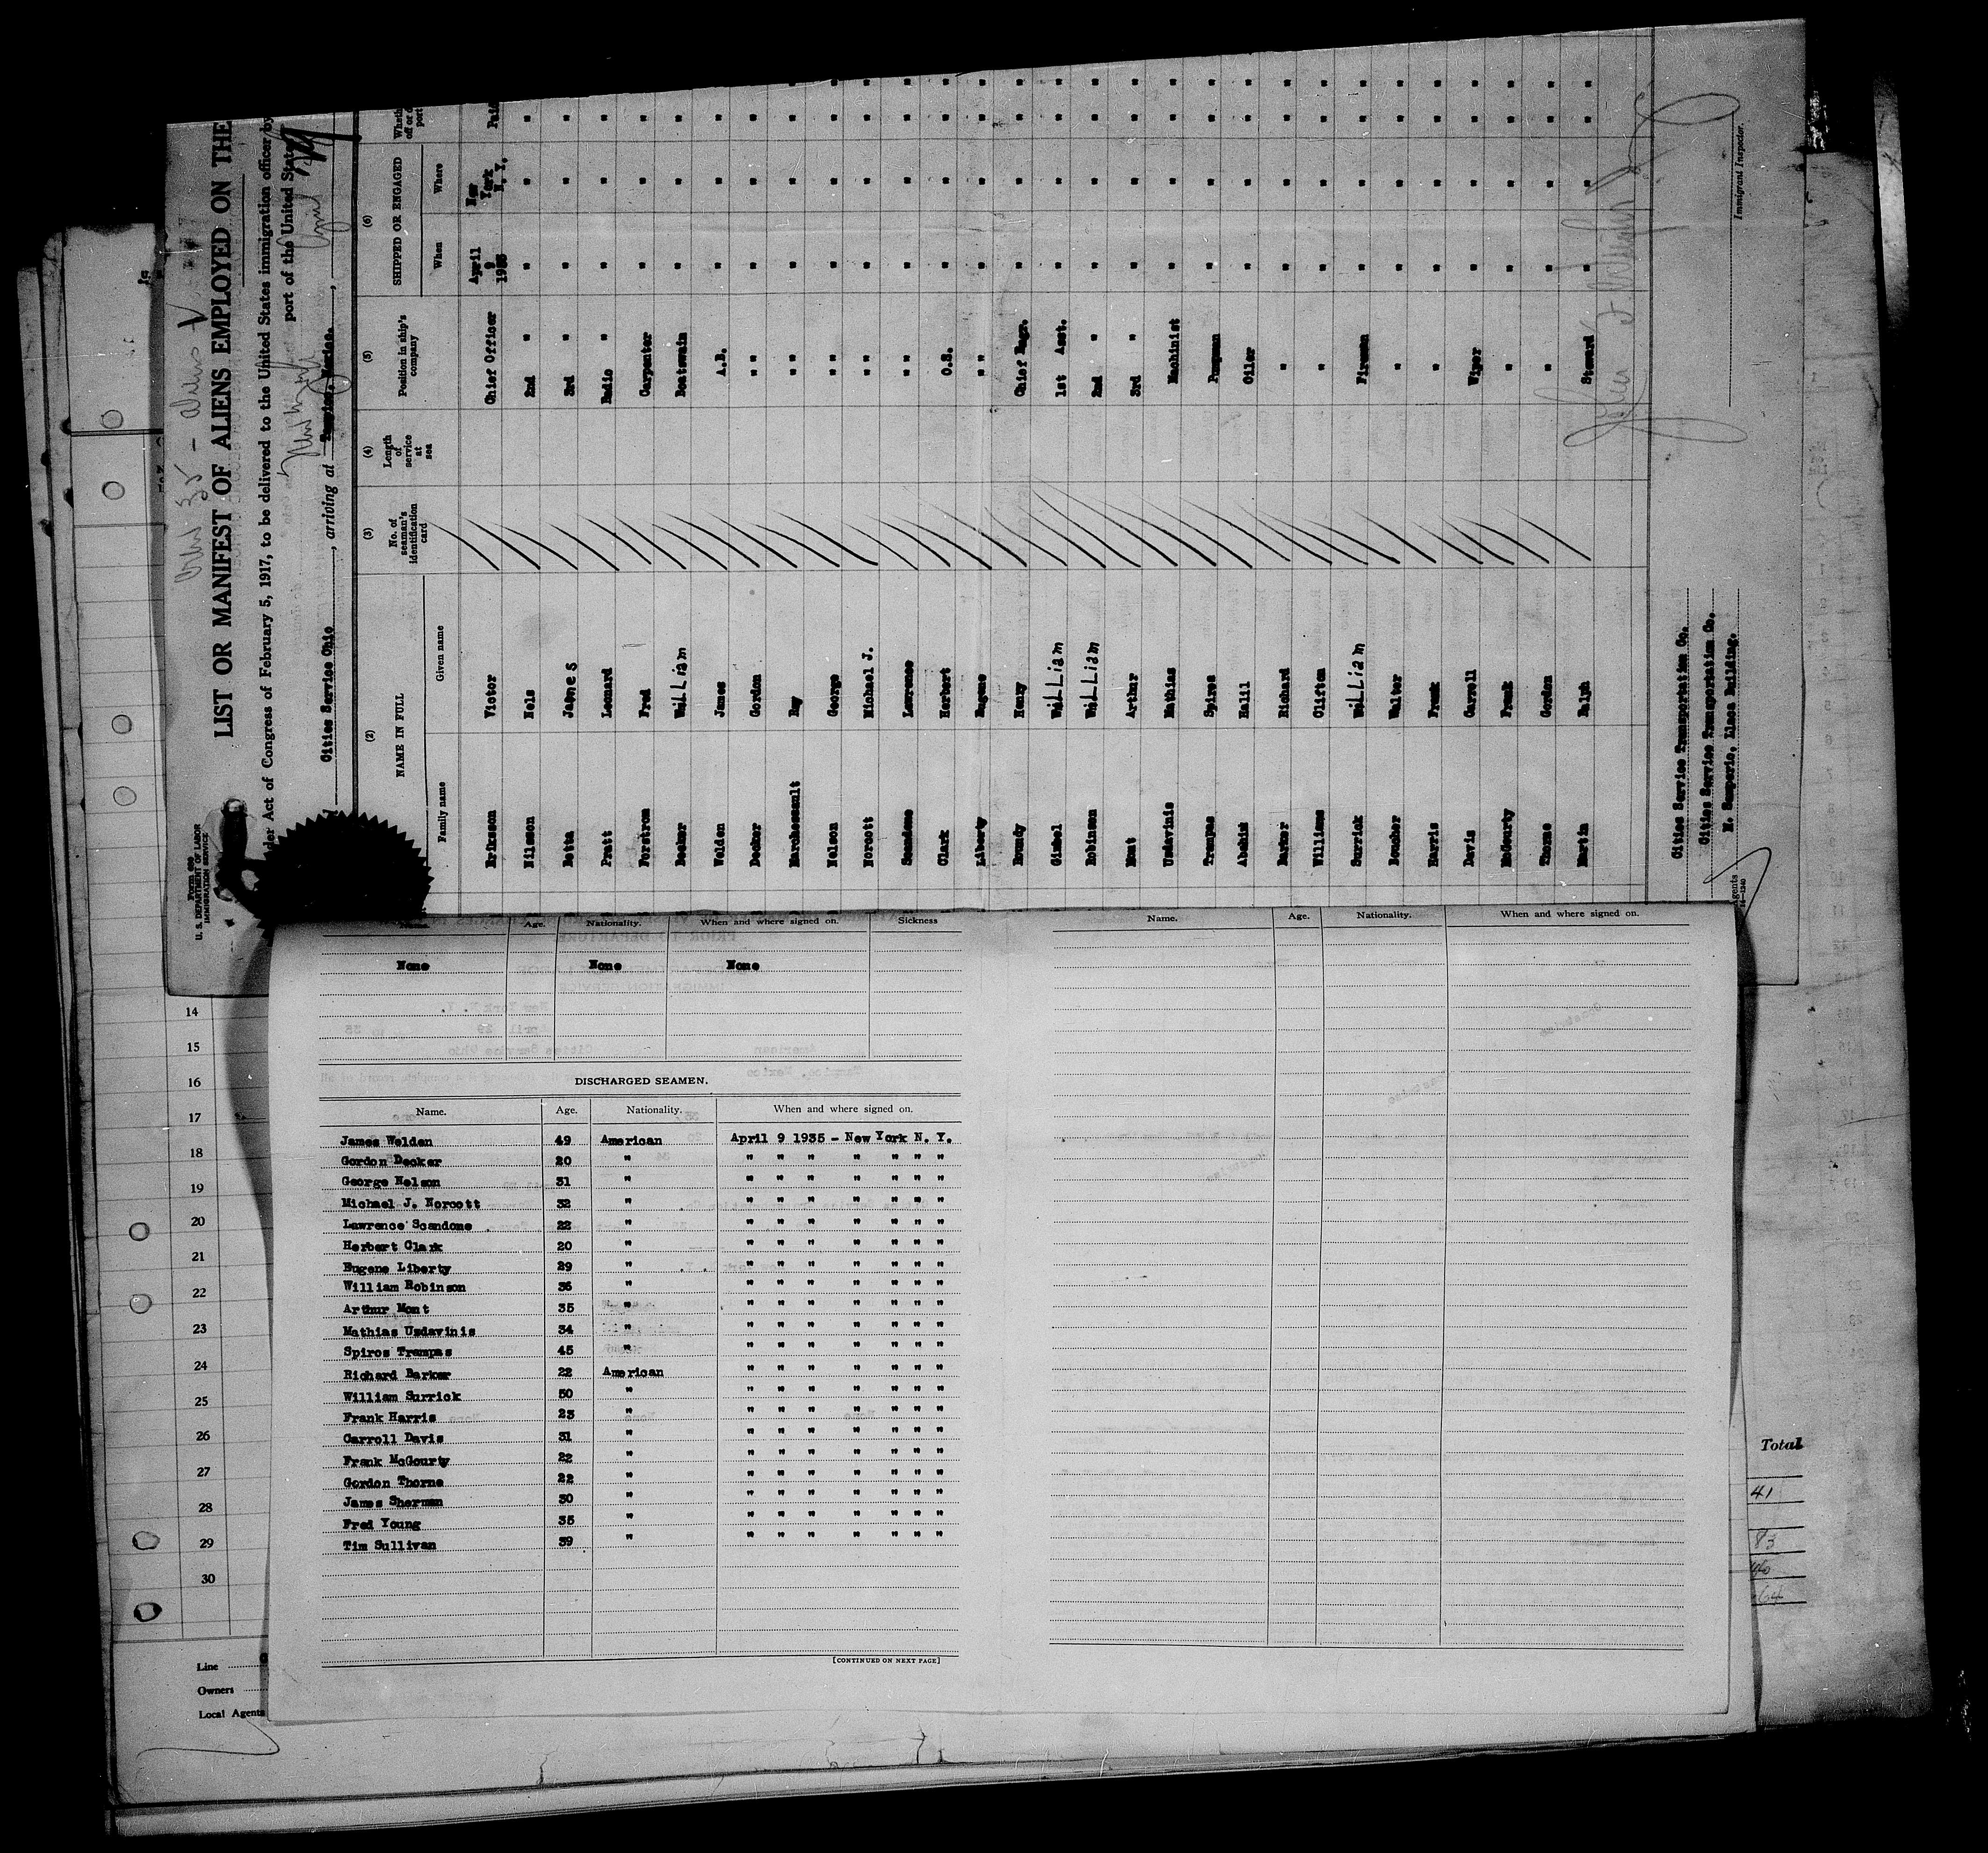 Form 689
U. S. DEPARTMENT OF LABOR
IMMIGRATION SERVICE
LIST OR MANIFEST OF ALIENS EMPLOYED ON THE
der Act of Congress of February 5, 1917, to be delivered to the United States immigration officer by
port of the United States
Cities Service Ohio, arriving at Tampico, Mexico. New York April
(2) (3) (4) (5) (6)
NAME IN FULL No. of seaman's identification card Length of service at sea Position in ship's company SHIPPED OR ENGAGED
Family name Given name When Where
Eriksson Victor Chief Officer April 9 1935 New York N. Y. Paid
Nilsson Nels 2nd " " " "
Botta James 3rd " " " "
Pratt Leonard Radio " " " "
Forstrom Fred Carpenter " " "
Becker William Boatswain " " "
Welden James A.B. " " "
Decker Gordon " " " " "
Marchessault Ray " " " " "
Nelson George " " " " "
Norcott Michael J. " " " " "
Scandone Lawrence " " " " "
Clark Herbert O.S. " " "
Liberty Eugene " " " " "
Brundy Henry Chief Engr. " " "
Gimbel William 1st Asst. " " "
Robinson William 2nd " " " "
Mont Arthur 3rd " " " "
Usdavinis Mathias Machinist " " "
Trampas Spiros Pumpman " " "
Halil Oiler " " "
Barker Richard " " " "
Williams Clifton " " " "
Surrick William Fireman " " "
Boucher Walter " " " "
Harris Frank " " " "
Davis Carroll Wiper " " "
McGourty Frank " " " "
Thorne Gordon " " " "
Martin Ralph Steward " " "
Immigrant Inspector.
Cities Service Transportation Co.
Cities Service Transportation Co.
Agents
Name. Age. Nationality. When and where signed on. Sickness
None None None
DISCHARGED SEAMEN.
Name. Age. Nationality. When and where signed on.
James Welden 49 American April 9 1935 - New York N. Y.
Gordon Decker 20 " " " " " " " "
George Nelson 31 " " " " " " " "
Michael J. Norcott 32 " " " " " " " "
Lawrence Scandone 22 " " " " " " " "
Herbert Clark 20 " " " " " " " "
Eugene Liberty 29 " " " " " " " "
William Robinson 36 " " " " " " " "
Arthur Mont 35 " " " " " " " "
Mathias Usdavinis 34 " " " " " " " "
Spiros Trampas 45 " " " " " " " "
Richard Barker 22 American " " " " " " "
William Surrick 50 " " " " " " " "
Frank Harris 23 " " " " " " " "
Carroll Davis 31 " " " " " " " "
Frank McGourty 22 " " " " " " " "
Gordon Thorne 22 " " " " " " " "
James Sherman 30 " " " " " " " "
Fred Young 35 " " " " " " " "
Tim Sullivan 39 " " " " " " " "
[CONTINUED ON NEXT PAGE]
Name. Age. Nationality. When and where signed on.
14
15
16
17
18
19
20
21
22
23
24
25
26
27
28
29
30
Line
Owners
Local Agents
Total
41
83